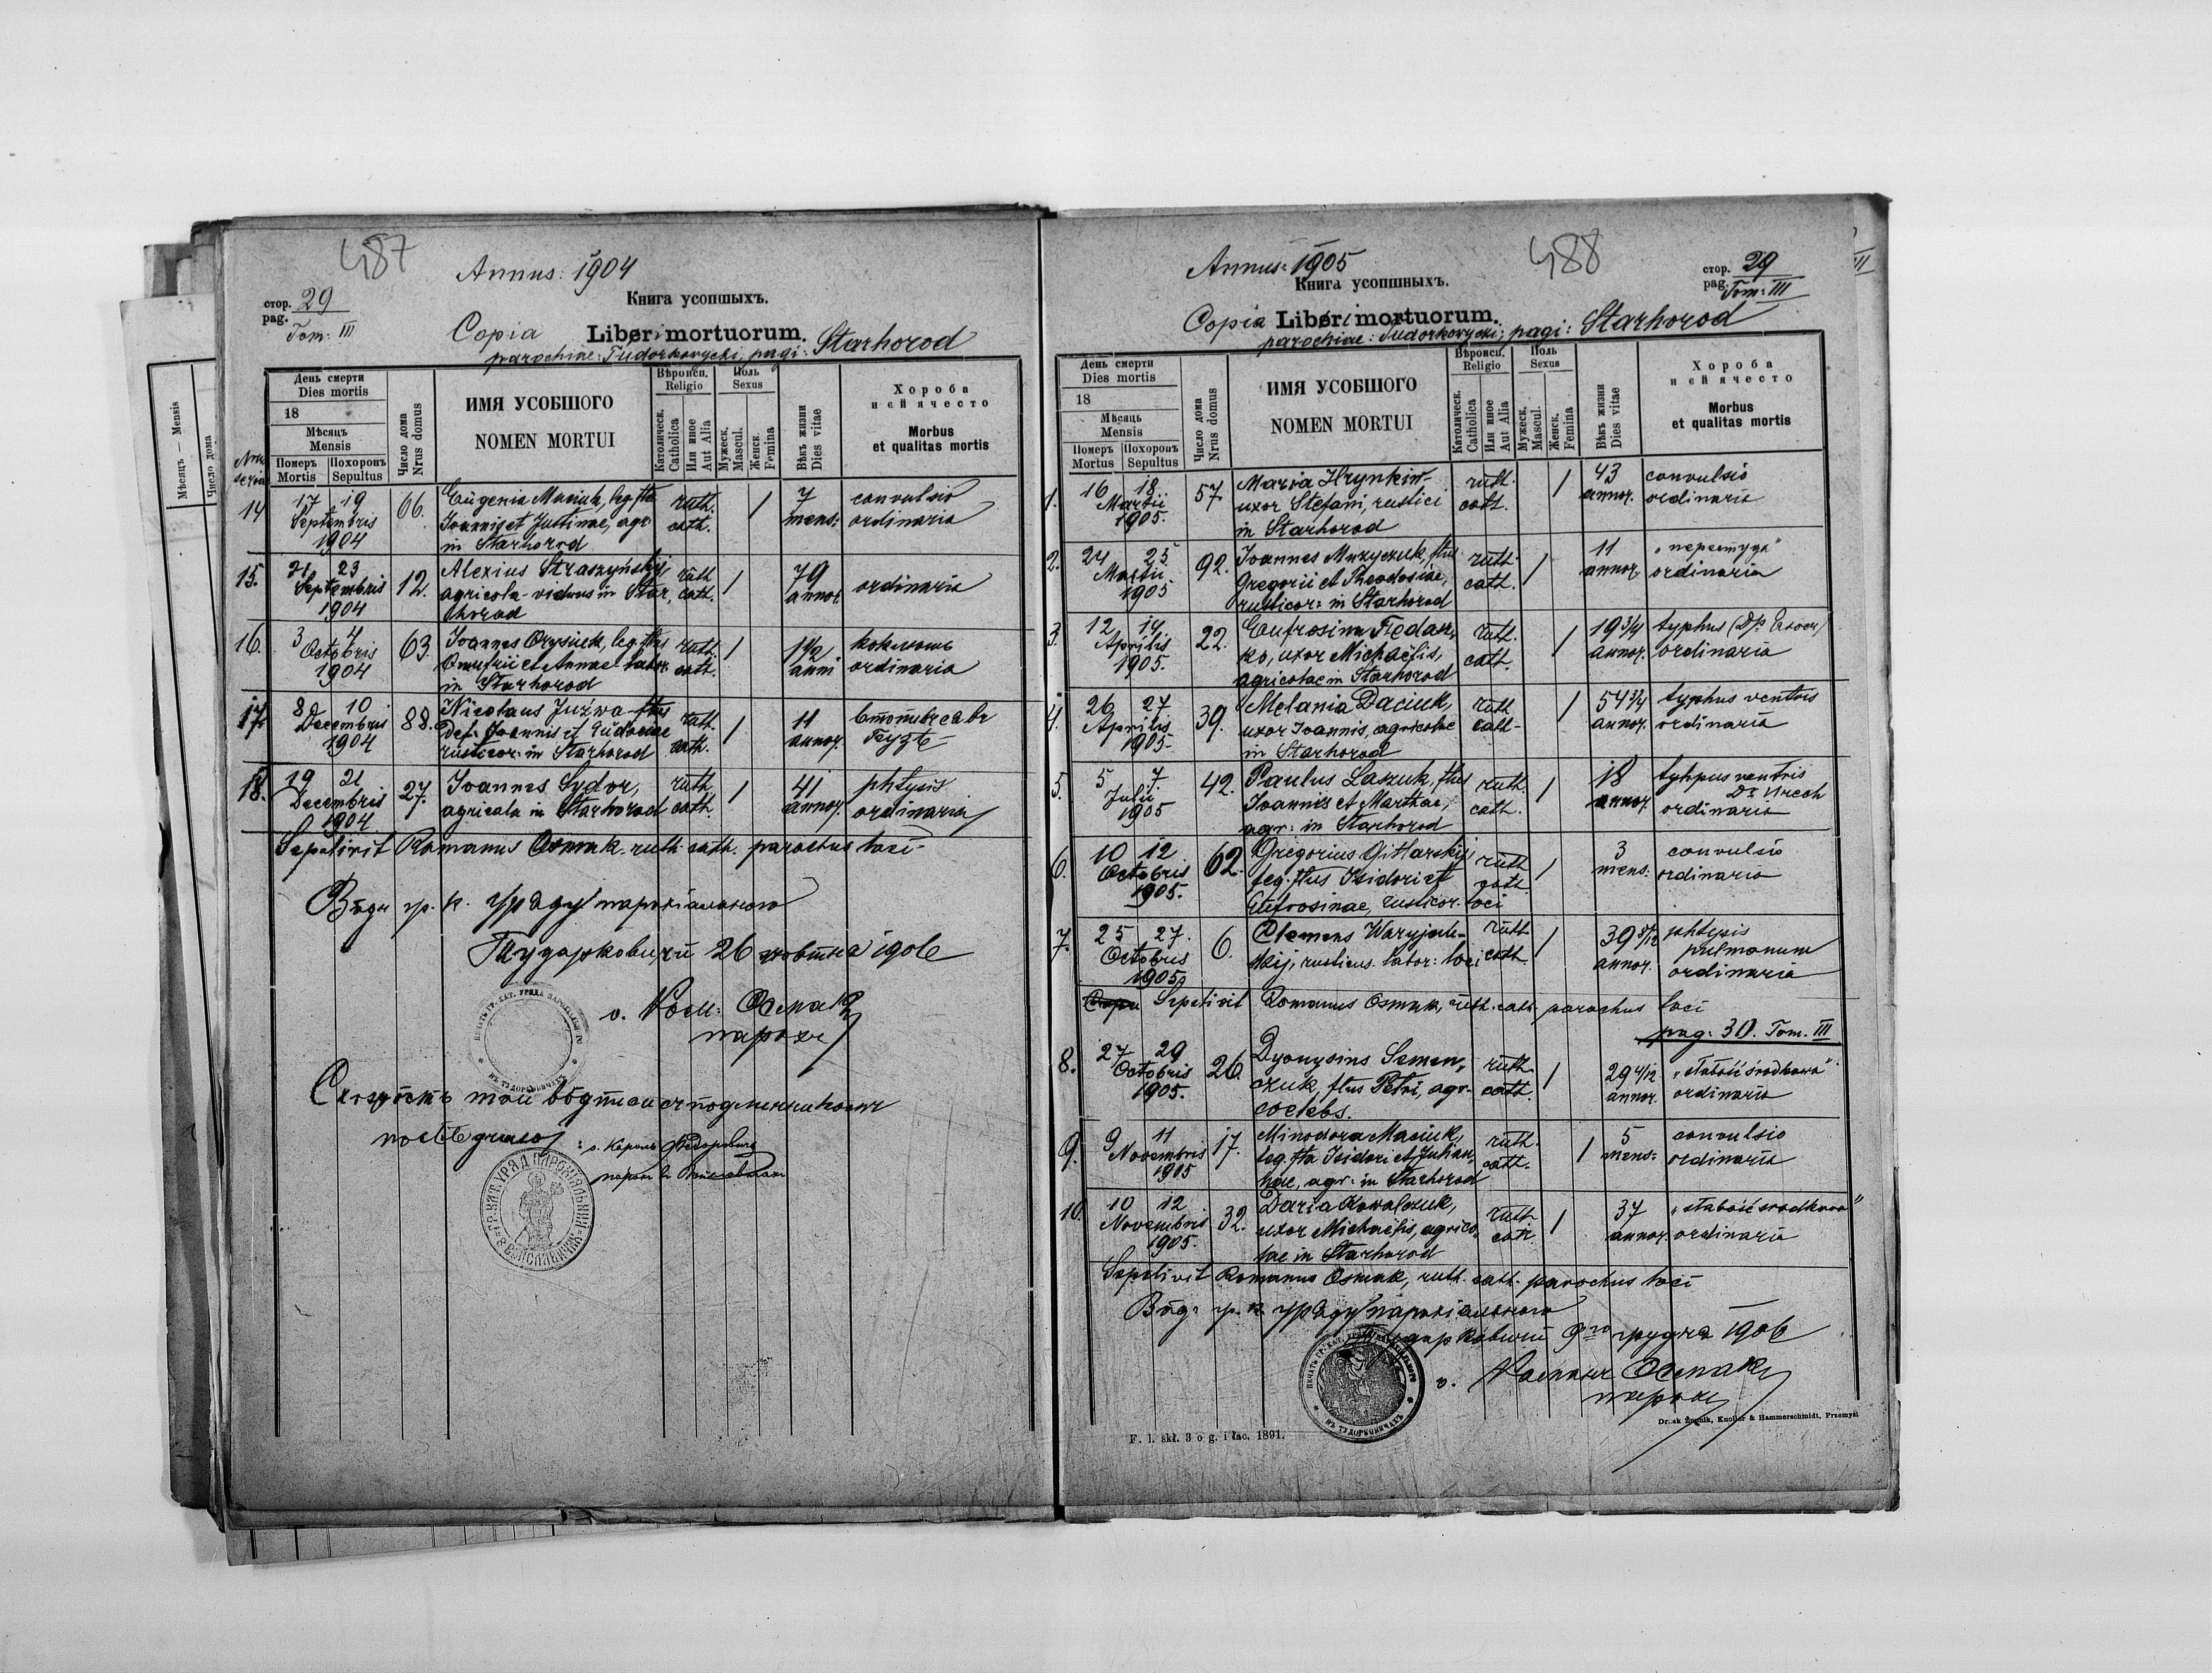 487
Annus: 1904
стор. 29
pag.
Tom: III
Книга усопшыхъ.
Copia Liber mortuorum.
parochiae: Tudorkovyczi, pagi: Starhorod
День смерти
Dies mortis
18
Мѣсяць
Mensis
Померъ Похоронъ
Mortis Sepultus
Число дома
Nrus domus
ИМЯ УСОБШОГО
NOMEN MORTUI
Вѣроисп.
Religio
Католическ.
Catholica
Или иное
Aut Alia
Поль
Sexus
Мужеск.
Mascul.
Женск.
Femina
Вѣкъ жизни
Dies vitae
Хороба
и єй ячесто
Morbus
et qualitas mortis
14 17 19 Septembris 1904 66.
Eugenia Maciuk, leg. fta
Joannis et Justinae, agr.
in Starhorod
ruth. cath. 1 7 mens: convulsio ordinaria
15. 21 23 Septembris 1904 12.
Alexius Straszyńskyj
agricola viduus in Star,
horod
ruth. cath. 1 79 annor. ordinaria
16. 3 4 Octobris 1904 63.
Joannes Orysiuk, leg. ftus
Onufrii et Annae
in Starhorod
ruth. cath. 1 1 1/2 anni коклюшъ ordinaria
17. 8 10 Decembris 1904 88.
Nicolaus Juźwa ftus
Def. Joannis et Eudociae
rusticor: in Starhorod
ruth. cath. 1 11 annor.
18. 19 21 Decembris 1904 27.
Joannes Sydor,
agricola in Starhorod
ruth. cath. 1 41 annor. phtysis ordinaria
Sepelivit Romanus Osmak ruth. cath. parochus loci
Вôдъ гр. к. уряду парохіального
26 жовтня 1906
о. Ром: Осмак
парохъ
488
Annus: 1905
стор. 29
pag.
Tom: III
Книга усопшныхъ.
Copia Liber mortuorum.
parochiae: Tudorkovyczi; pagi: Starhorod
День смерти
Dies mortis
18
Мѣсяць
Mensis
Померъ Похоронъ
Mortus Sepultus
Число дома
Nrus domus
ИМЯ УСОБШОГО
NOMEN MORTUI
Вѣроисп.
Religio
Католическ.
Catholica
Или иное
Aut Alia
Поль
Sexus
Мужеск.
Mascul.
Женск.
Femina
Вѣкъ жизни
Dies vitae
Хороба
и єй ячесто
Morbus
et qualitas mortis
1. 16 18 Martii 1905. 57.
Maria Hrynkiw
uxor Stefani, rustici
in Starhorod
ruth. cath. 1 43 annor. convulsio ordinaria
2. 24 25 Martii 1905 92.
Joannes Muzyczuk, ftus
Gregorii et Theodosiae,
rusticor: in Starhorod
ruth. cath. 1 11 annor. "перестуда" ordinaria
3. 12 14 Aprilis 1905. 22.
Eufrosina Fedasz,
ko, uxor Michaëlis,
agricolae in Starhorod
ruth. cath. 1 19 3/4 annor. typhus ordinaria
4. 26 27 Aprilis 1905 39.
Melania Daciuk,
uxor Joannis, agricolae
in Starhorod
ruth. cath. 1 54 3/4 annor. typhus ventris ordinaria
5. 5 7. Julii 1905 42.
Paulus Laszuk, ftus
Joannis et Marthae,
agr: in Starhorod
ruth. cath. 1 18 annor. typhus ventris ordinaria
6. 10 12 Octobris 1905. 62.
Gregorius Gitlarskij
leg. ftus Isidori et
Eufrosinae, rusticor. loci
ruth. cath. 1 3 mens: convulsio ordinaria
7. 25 27. Octobris 1905 6.
Clemens
rusticus. labor: loci
ruth. cath. 1 39 annor. phtysis pulmonum ordinaria
Sepelivit Romanus Osmak, ruth. cath. parochus loci
pag: 30. Tom. III
8. 27 29 Octobris 1905. 26.
Dyonysius Semen,
czuk, ftus Petri, agr.
coelebs.
ruth. cath. 1 29 4/12 annor. "słabość środkowa" ordinaria
9. 9 11 Novembris 1905 17.
Minodora Maciuk,
leg. fta Isidori et Julian,
nae, agr: in Starhorod
ruth. cath. 1 5 mens: convulsio ordinaria
10. 10 12 Novembris 1905. 32.
Daria Kowalczuk,
uxor Michaëlis, agrico,
lae in Starhorod
ruth. cath. 1 37 annor. "słabość środkowa" ordinaria
Sepelivit Romanus Osmak, ruth. cath. parochus loci
Вôдъ гр. к. уряду парохіального
9го грудня 1906
о. Романъ Осмак
парох
F. l. skł. 3 o g. i łac. 1891.